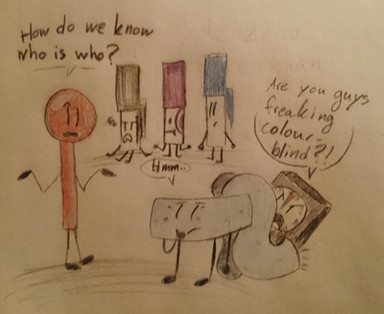 How do we know
who is who?
Hmm..
Are you guys
freaking
colour-
blind?!